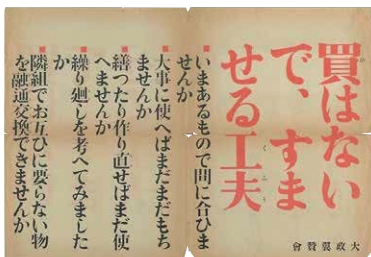 買はない
で、すま
せる工夫
くふう
大政翼賛會
いまあるもので間に合ひま
せんか
大事に使へばまだまだもち
ませんか
繕つたり作り直せばまだ使
へませんか
繰り廻しを考へてみました
か
隣組でお互ひに要らない物
を融通交換できませんか